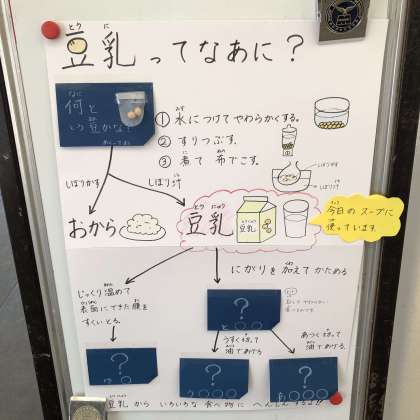 豆乳ってなあに？
とう にゅう
なに
何という豆かな？
めくってね
① 水につけてやわらかくする。
② すりつぶす。
③ 煮て 布でこす。
しぼりかす
しぼり汁
しぼりかす
しぼり汁
おから
豆乳
とう にゅう
豆乳
今日の スープに
使っています。
じっくり温めて
表面にできた膜を
すくいとる。
にがりを加えてかためる
？
うすく切って
油であげる。
あつく切って
油であげる。
？
？
？
豆乳から いろいろな 食べ物に へんしんするよ!!